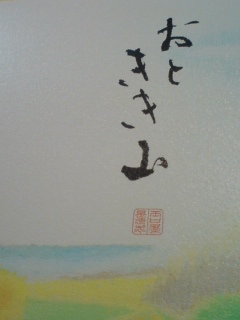 おと
きき山